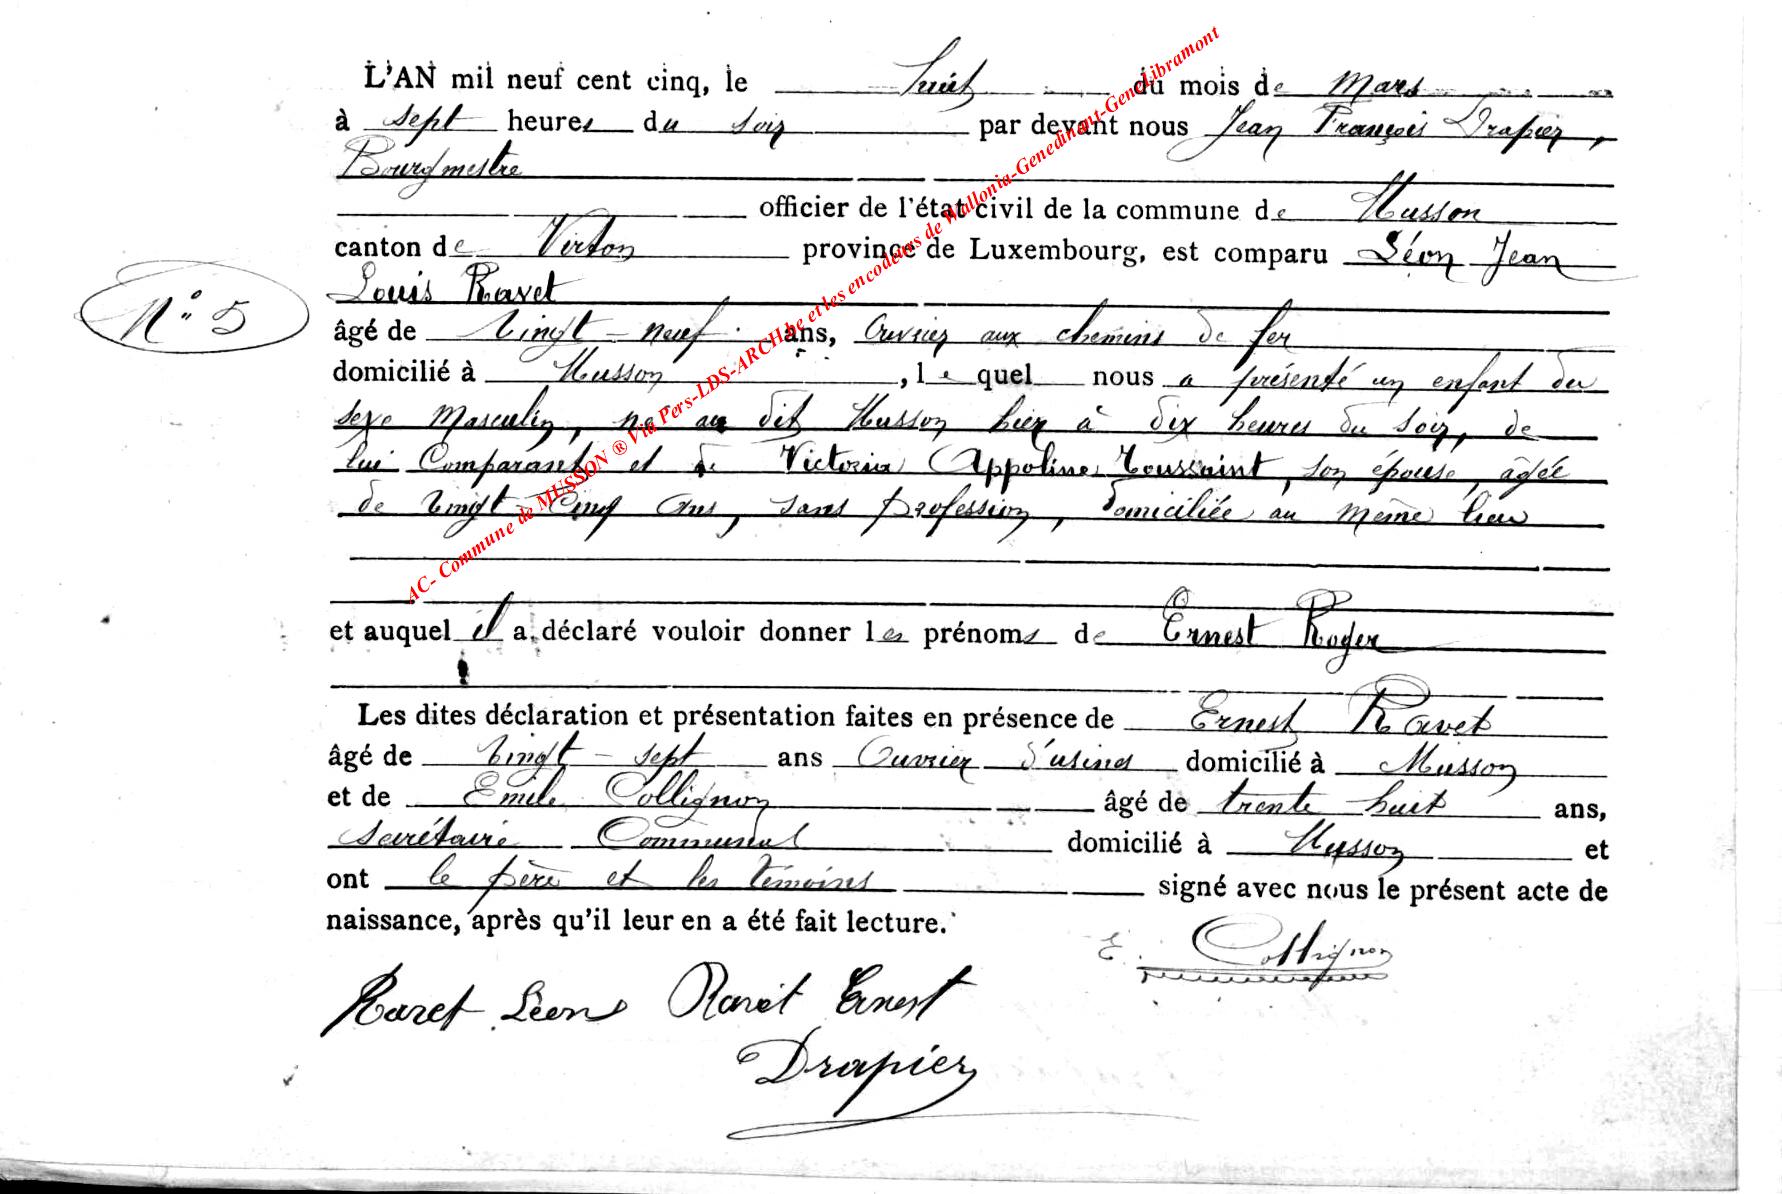 L'AN mil neuf cent cinq, le huit du mois de Mars
à sept heures du soir par devant nous Jean François Drapier,
Bourgmestre
officier de l'état civil de la commune de Musson
canton de Virton province de Luxembourg, est comparu Léon Jean
Louis Ravet
N° 5
âgé de vingt-neuf ans, Ouvrier aux chemins de fer
domicilié à Musson, lequel nous a présenté un enfant du
sexe Masculin, né au dit Musson hier à dix heures du soir, de
lui Comparant et de Victoria Appoline Toussaint, son épouse, âgée
de vingt-cinq ans, sans profession, domiciliée au même lieu
et auquel il a déclaré vouloir donner les prénoms de Ernest Roger
Les dites déclaration et présentation faites en présence de Ernest Ravet
âgé de vingt-sept ans Ouvrier d'usines domicilié à Musson
et de Emile Collignon âgé de trente-huit ans,
Secrétaire Communal domicilié à Musson et
ont le père et les témoins signé avec nous le présent acte de
naissance, après qu'il leur en a été fait lecture.
E. Collignon
Ravet Léon Ravet Ernest
Drapier
AC- Commune de MUSSON ® Via Pers-LDS-ARCH.be et les encodeurs de Wallonia-Genedinant-GeneLibramont